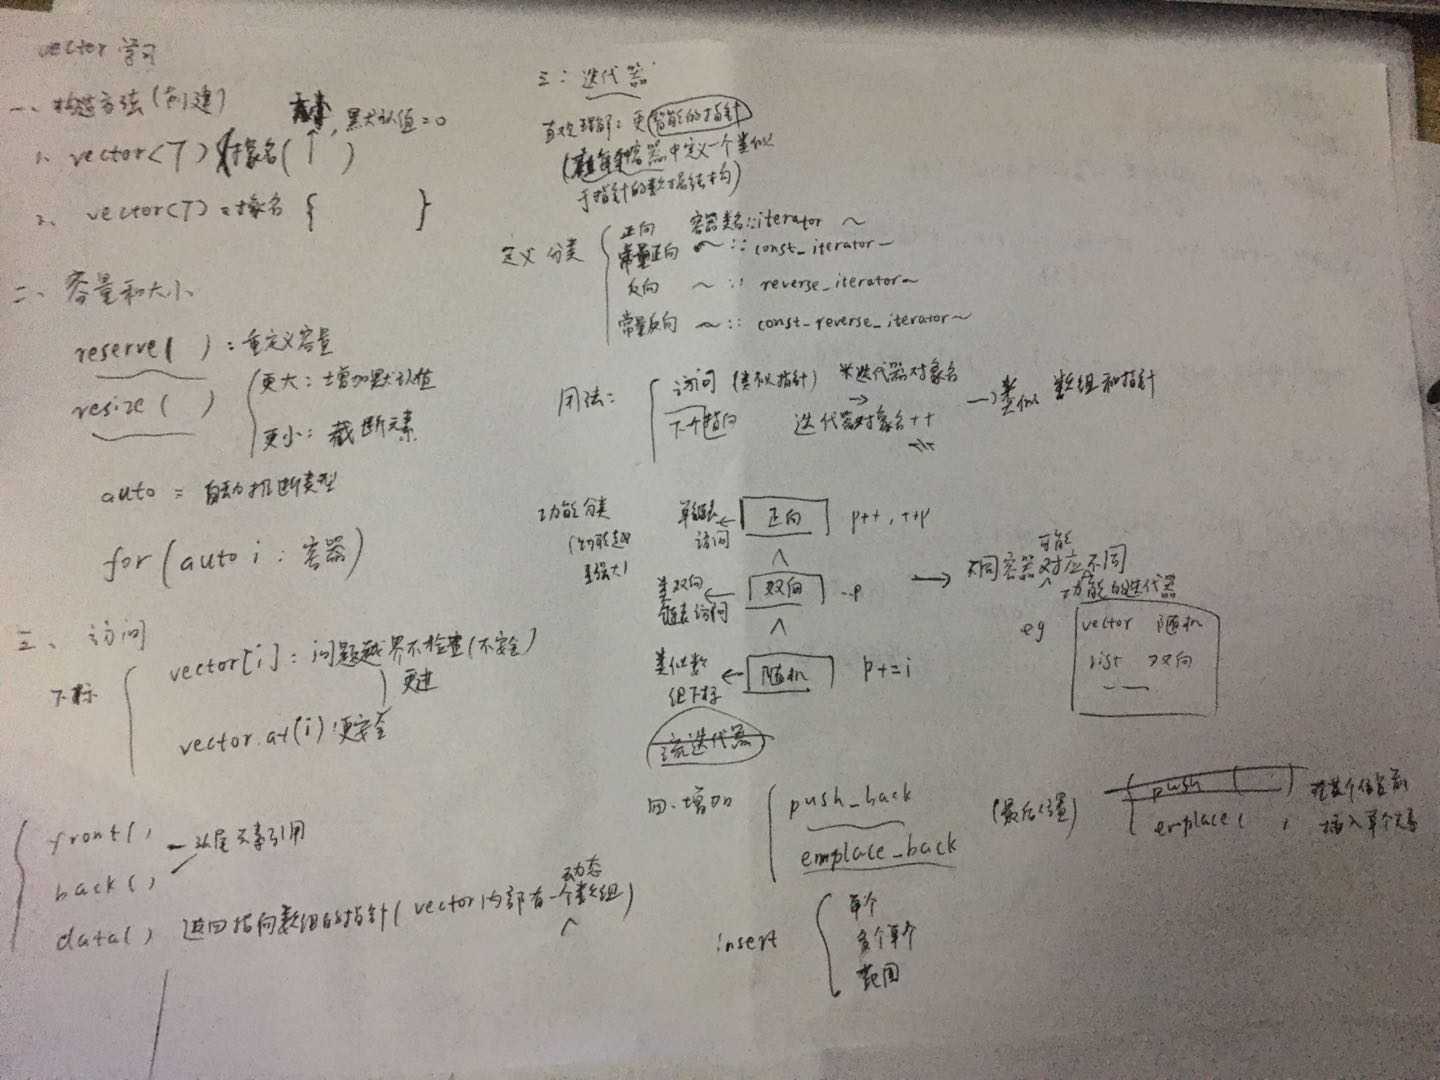 vector 学习
一、构造方法(创建)
大小, 默认值=0
1. vector<T> 对象名( )
2. vector<T> = 对象名 { }
二、容量和大小
reserve( ) : 重定义容量
resize ( )
更大: 增加默认值
更小: 截断元素
auto = 自动推断类型
for (auto i : 容器)
三、访问
下标
vector[i] : 问题越界不检查(不安全)
更进
vector.at(i) 更安全
front(),
back()
头尾元素引用
data() 返回指向数组的指针( vector内部有一个动态数组)
三: 迭代器
直观理解: 更智能的指针
(在每个容器中定义一个类似
于指针的数据结构)
定义 分类
正向 容器类名::iterator ~
常量正向 ~ :: const_iterator ~
反向 ~ :: reverse_iterator ~
常量反向 ~ :: const_reverse_iterator ~
用法:
访问 (类似指针) *迭代器对象名
下个指向 迭代器对象名++
→ 类似 数组和指针
功能分类
(功能越
强大)
单链表 ← 正向 p++, ++p
访问
∧
类双向 ← 双向 --p
链表访问
∧
类似数 ← 随机 p+=i
组下标
→ 不同容器可能对应不同
功能的迭代器
eg
vector 随机
list 双向
流迭代器
四.增加
push_back
emplace_back
(最后位置)
push (
emplace(
在某个位置前
插入单个元素
insert
单个
多个单个
范围